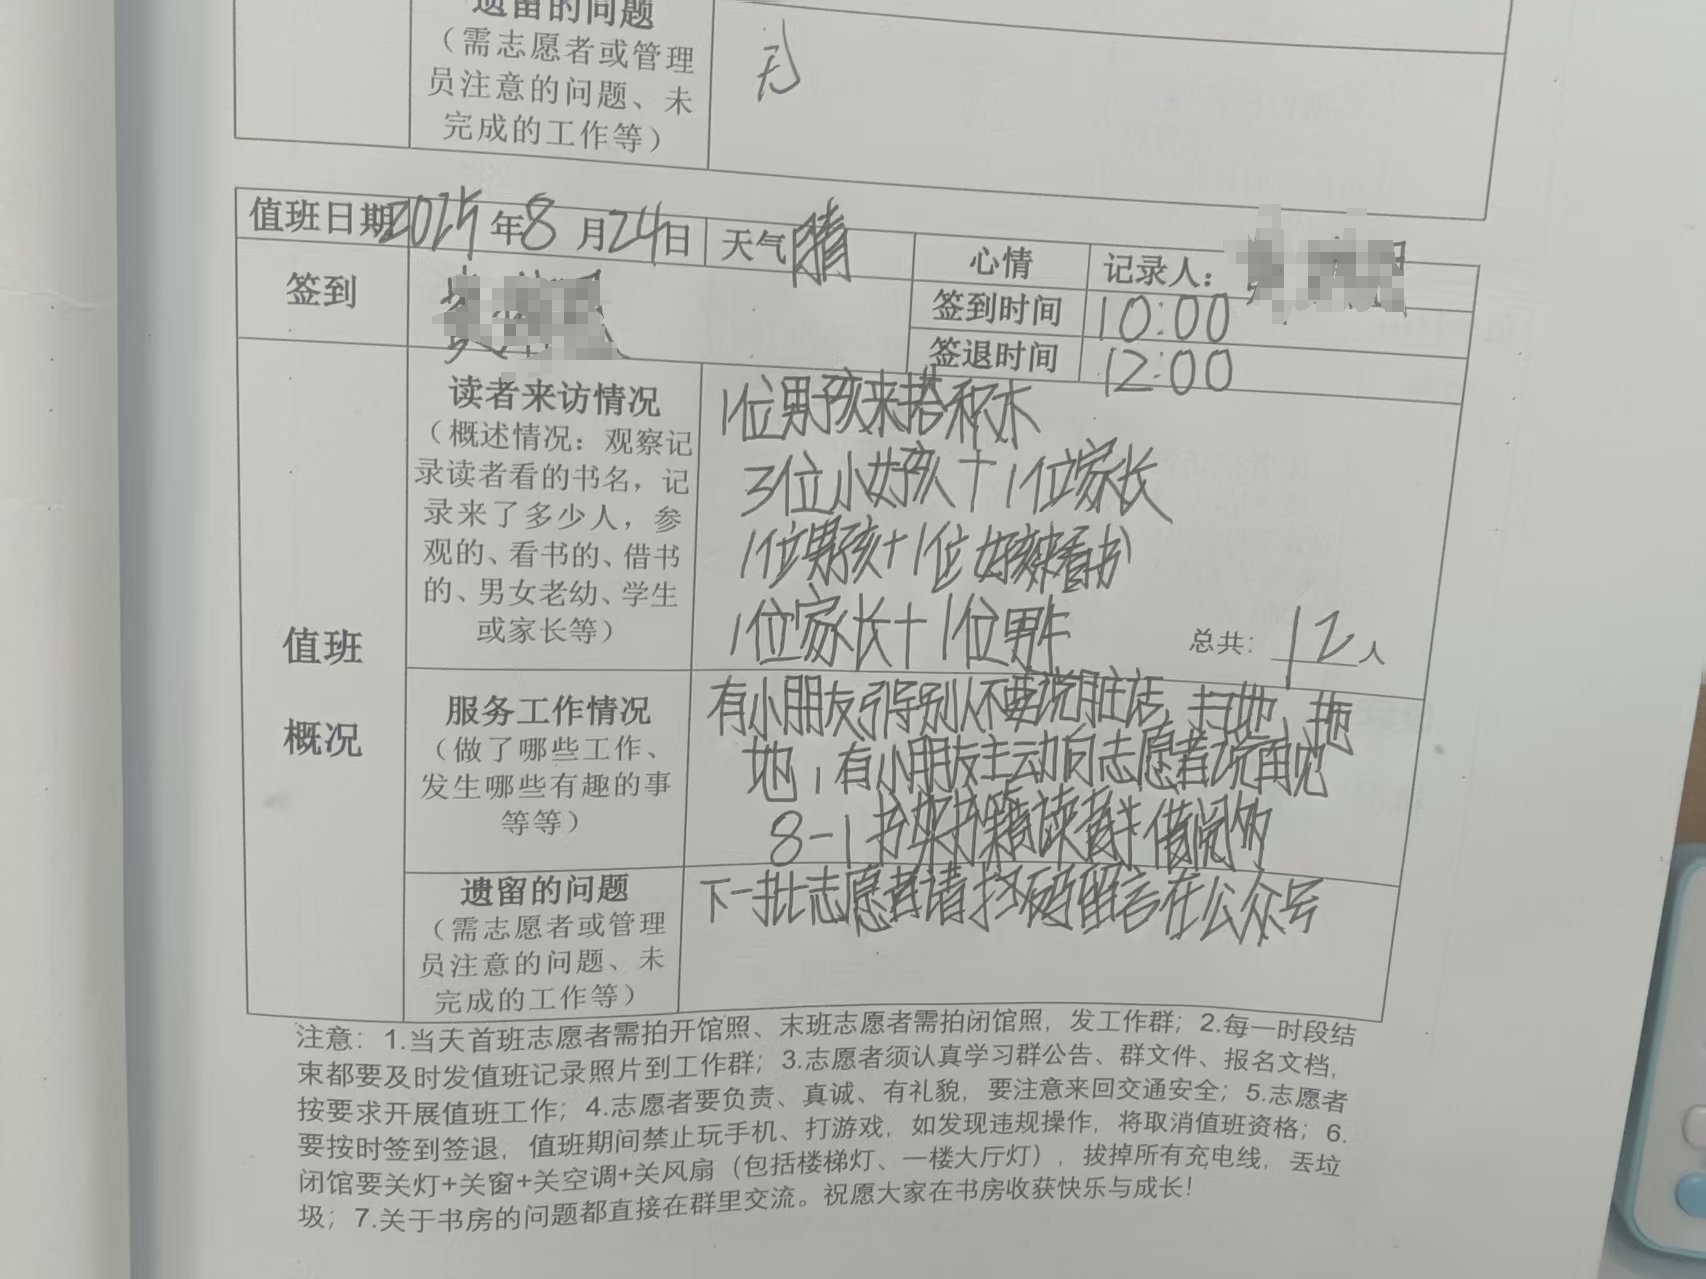 遗留的问题
（需志愿者或管理
员注意的问题、未
完成的工作等）
无
值班日期 2025年8月24日 天气 晴 心情 记录人：
签到 签到时间 10:00
签退时间 12:00
值班
概况
读者来访情况
（概述情况：观察记
录读者看的书名，记
录来了多少人，参
观的、看书的、借书
的、男女老幼、学生
或家长等）
1位男孩来搭积木
3位小女孩+1位家长
1位男孩+1位女孩来看书
1位家长+1位男生
总共：12人
服务工作情况
（做了哪些工作、
发生哪些有趣的事
等等）
有小朋友引导别人不要说脏话，扫地、拖
地，有小朋友主动向志愿者说再见
8-1书架书籍读者借阅多
遗留的问题
（需志愿者或管理
员注意的问题、未
完成的工作等）
下一批志愿者请扫码留言在公众号
注意：1.当天首班志愿者需拍开馆照、末班志愿者需拍闭馆照，发工作群；2.每一时段结
束都要及时发值班记录照片到工作群；3.志愿者须认真学习群公告、群文件、报名文档，
按要求开展值班工作；4.志愿者要负责、真诚、有礼貌，要注意来回交通安全；5.志愿者
要按时签到签退，值班期间禁止玩手机、打游戏，如发现违规操作，将取消值班资格；6.
闭馆要关灯+关窗+关空调+关风扇（包括楼梯灯、一楼大厅灯），拔掉所有充电线，丢垃
圾；7.关于书房的问题都直接在群里交流。祝愿大家在书房收获快乐与成长！